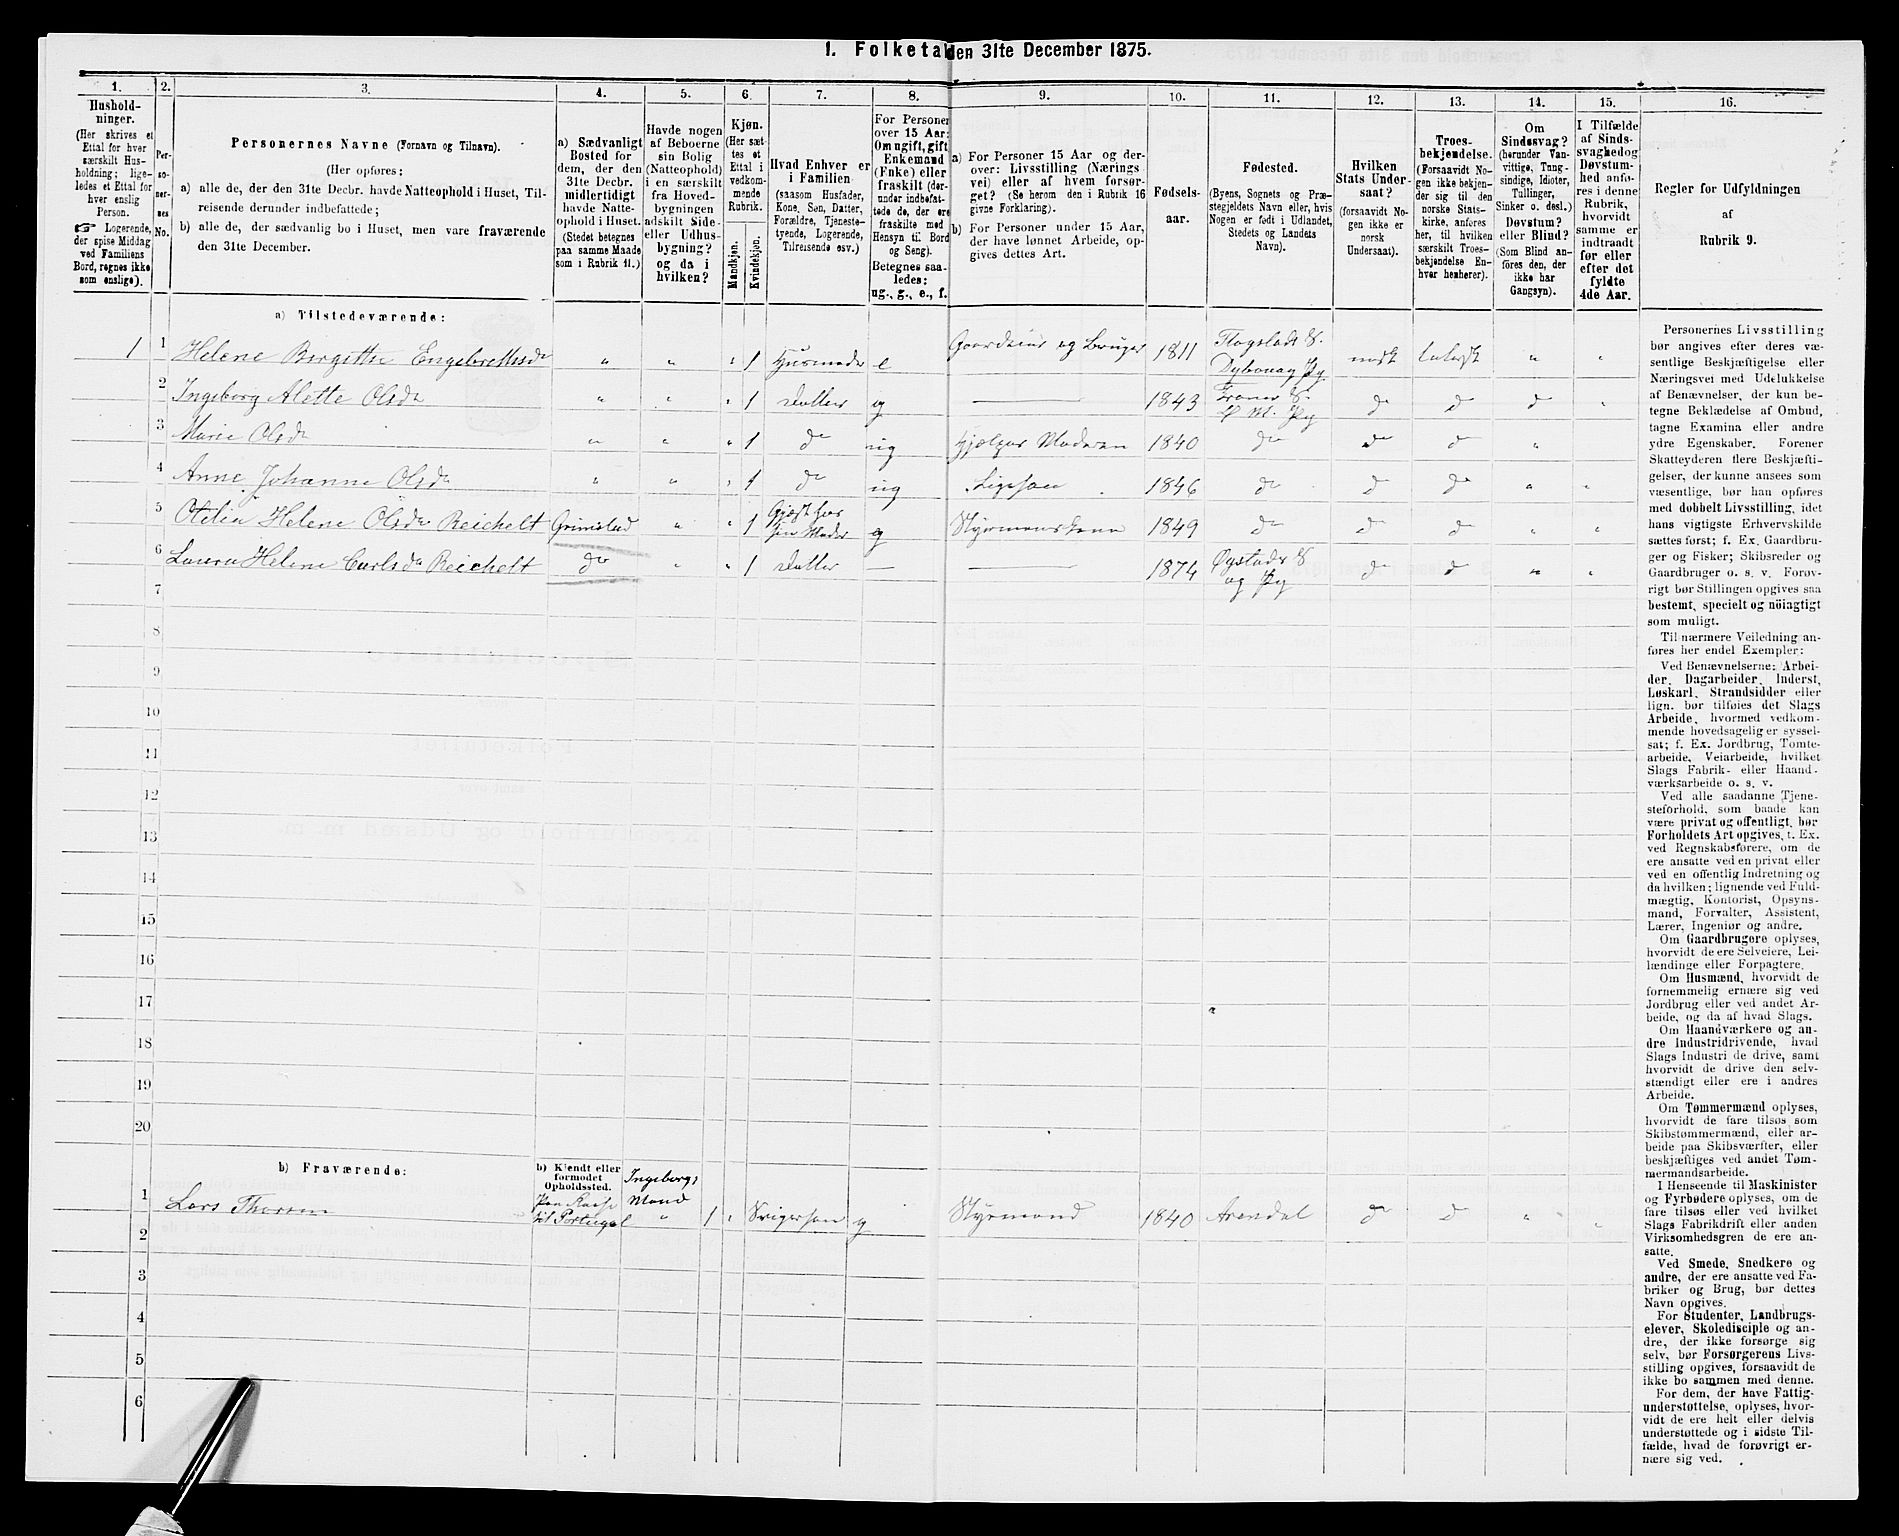 1. Folketal den 31te December 1875.
1. 2. 3. 4. 5. 6. 7. 8. 9. 10. 11. 12. 13. 14. 15. 16.
Hushold-
ninger.
(Her skrives et
Ettal for hver
særskilt Hus-
holdning; lige-
ledes et Ettal for
hver enslig
Person.
☞ Logerende,
der spise Middag
ved Familiens
Bord, regnes ikke
som enslige).
Per-
so-
ner-
nes
No.
Personernes Navne (Fornavn og Tilnavn).
(Her opføres:
a) alle de, der den 31te Decbr. havde Natteophold i Huset, Til-
reisende derunder indbefattede;
b) alle de, der sædvanlig bo i Huset, men vare fraværende
den 31te December.
a) Sædvanligt
Bosted for
dem, der den
31te Decbr.
midlertidigt
havde Natte-
ophold i Huset.
(Stedet betegnes
paa samme Maade
som i Rubrik 11.)
Havde nogen
af Beboerne
sin Bolig
(Natteophold)
i en særskilt
fra Hoved-
bygningen
adskilt Side-
eller Udhus-
bygning?
og da i
hvilken?
Kjøn.
(Her sæt-
tes et
Ettal i
vedkom-
mende
Rubrik.
Mandkjøn.
Kvindekjøn.
Hvad Enhver er
i Familien
(saasom Husfader,
Kone, Søn, Datter,
Forældre, Tjeneste-
tyende, Logerende,
Tilreisende osv.)
For Personer
over 15 Aar:
Om ugift, gift,
Enkemand
(Enke) eller
fraskilt (der-
under indbefat-
tede de, der ere
fraskilte med
Hensyn til Bord
og Seng).
Betegnes saa-
ledes:
ug., g., e., f.
a) For Personer 15 Aar og der-
over: Livsstilling (Nærings
vei) eller af hvem forsør-
get? (Se herom den i Rubrik 16
givne Forklaring).
b) For Personer under 15 Aar,
der have lønnet Arbeide, op-
gives dettes Art.
Fødsels-
aar.
Fødested.
(Byens, Sognets og Præ-
stegjeldets Navn eller, hvis
Nogen er født i Udlandet,
Stedets og Landets
Navn).
Hvilken
Stats Under-
saat?
(forsaavidt No-
gen ikke er
norsk
Undersaat).
Troes-
bekjendelse.
(Forsaavidt No-
gen ikke bekjen-
der sig til den
norske Stats-
kirke, anføres
her, til hvilken
særskilt Troes-
bekjendelse En-
hver henhører).
Om
Sindssvag?
(herunder Van-
vittige, Tung-
sindige, Idioter,
Tullinger,
Sinker o. desl.)
Døvstum?
eller Blind?
(Som Blind an-
føres den, der
ikke har
Gangsyn).
I Tilfælde
af Sinds-
svaghed og
Døvstum-
hed anfø-
res i denne
Rubrik,
hvorvidt
samme er
indtraadt
før eller
efter det
fyldte
4de Aar.
Regler for Udfyldningen
af
Rubrik 9.
a) Tilstedeværende:
1 1 Helene Birgitte Engebrettsd " " " 1 Husmoder e Gaardeier og Bruger 1811 Flagstads S. Dybvaag Pg norsk luthersk " "
2 Ingeborg Alette Olsda " " " 1 Datter g — 1843 S. Pg do do do "
3 Marie Olsda " " " 1 do ug hjelper Moderen 1840 do do do "
4 Anne Johanne Olsda " " " 1 do ug Ligesaa 1846 do do do " "
5 Otilia Helene Olsda Reichelt Grimstad " " 1 Gjest hos sin Moder g Styrmandskone 1849 do do do " "
6 Laura Helene Carlsda Reichelt do " " 1 Datter — — 1874 Øyestads S og Pg do do " "
7
8
9
10
11
12
13
14
15
16
17
18
19
20
b) Fraværende:
b) Kjendt eller
formodet
Opholdssted.
Ingeborgs
Mand
1 Lars Thorsen Paa Reise til Portugal " 1 " Svigersøn g Styrmand 1840 Arendal do do " "
2
3
4
5
6
Personernes Livsstilling
bør angives efter deres væ-
sentlige Beskjæftigelse eller
Næringsvei med Udelukkelse
af Benævnelser, der kun be-
tegne Beklædelse af Ombud,
tagne Examina eller andre
ydre Egenskaber. Forener
Skatteyderen flere Beskjæfti-
gelser, der kunne ansees som
væsentlige, bør han opføres
med dobbelt Livsstilling, idet
hans vigtigste Erhvervskilde
sættes først; f. Ex. Gaardbru-
ger og Fisker; Skibsreder og
Gaardbruger o. s. v. Forøv-
rigt bør Stillingen opgives saa
bestemt, specielt og nöiagtigt
som muligt.
Til nærmere Veiledning an-
føres her endel Exempler:
Ved Benævnelserne: Arbei-
der, Dagarbeider, Inderst,
Løskarl, Strandsidder eller
lign. bør tilføies det Slags
Arbeide, hvormed vedkom-
mende hovedsagelig er syssel-
sat; f. Ex. Jordbrug, Tomte-
arbeide, Veiarbeide, hvilket
Slags Fabrik- eller Haand-
værksarbeide o. s. v.
Ved alle saadanne Tjene-
steforhold, som baade kan
være privat og offentligt, bør
Forholdets Art opgives, t. Ex.
ved Regnskabsførere, om de
ere ansatte ved en privat eller
ved en offentlig Indretning og
da hvilken; lignende ved Fuld-
mægtig, Kontorist, Opsyns-
mand, Forvalter, Assistent,
Lærer, Ingeniør og andre.
Om Gaardbrugere oplyses,
hvorvidt de ere Selveiere, Lei-
lændinge eller Forpagtere.
Om Husmænd, hvorvidt de
fornemmelig ernære sig ved
Jordbrug eller ved andet Ar-
beide, og da af hvad Slags.
Om Haandværkere og an-
dre Industridrivende, hvad
Slags Industri de drive, samt
hvorvidt de drive den selv-
stændigt eller ere i andres
Arbeide.
Om Tømmermænd oplyses,
hvorvidt de fare tilsøs som
Skibstømmermænd, eller ar-
beide paa Skibsværfter, eller
beskjæftiges ved andet Tøm-
mermandsarbeide.
I Henseende til Maskinister
og Fyrbødere oplyses, om de
fare tilsøs eller ved hvilket
Slags Fabrikdrift eller anden
Virksomhedsgren de ere an-
satte.
Ved Smede, Snedkere og
andre, der ere ansatte ved Fa-
briker og Brug, bør dettes
Navn opgives.
For Studenter, Landbrugs-
elever, Skoledisciple og an-
dre, der ikke forsørge sig
selv, bør Forsørgerens Livs-
stilling opgives, forsaavidt de
ikke bo sammen med denne.
For dem, der have Fattig-
understøttelse, oplyses, hvor-
vidt de ere helt eller delvis
understøttede og i sidste Til-
fælde, hvad de forøvrigt er-
nære sig ved.